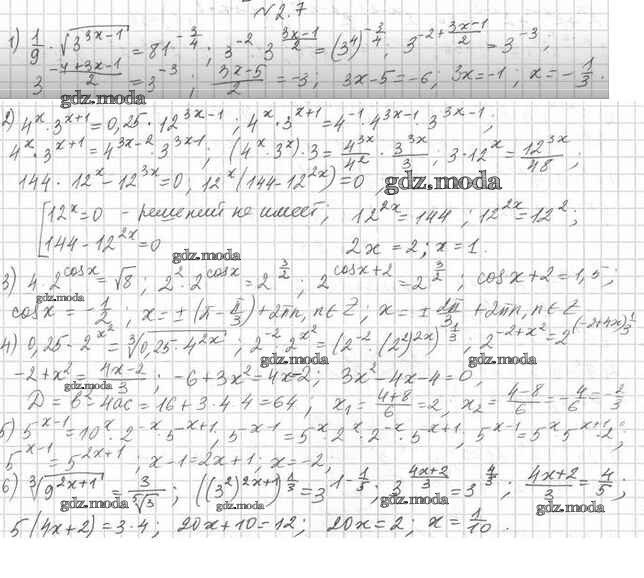 №2.7
1) 1/9 · √(3^(3x-1)) = 81^(-3/4); 3^(-2) · 3^((3x-1)/2) = (3^4)^(-3/4); 3^(-2+(3x-1)/2) = 3^(-3);
3^((-4+3x-1)/2) = 3^(-3); (3x-5)/2 = -3; 3x-5=-6; 3x=-1; x = -1/3.
gdz.moda
2) 4^x · 3^(x+1) = 0,25 · 12^(3x-1); 4^x · 3^(x+1) = 4^(-1) · 4^(3x-1) · 3^(3x-1);
4^x · 3^(x+1) = 4^(3x-2) · 3^(3x-1); (4^x · 3^x) · 3 = 4^(3x)/4^2 · 3^(3x)/3; 3 · 12^x = 12^(3x)/48;
144 · 12^x - 12^(3x) = 0; 12^x (144 - 12^(2x)) = 0
gdz.moda
[12^x = 0 - решений не имеет; 12^(2x) = 144; 12^(2x) = 12^2;
144 - 12^(2x) = 0 2x = 2; x = 1.
gdz.moda
3) 4 · 2^(cosx) = √8; 2^2 · 2^(cosx) = 2^(3/2); 2^(cosx+2) = 2^(3/2); cosx + 2 = 1,5;
gdz.moda
cosx = -1/2; x = ±(π - π/3) + 2πn, n∈Z; x = ± 2π/3 + 2πn, n∈Z
4) 0,25 · 2^(x^2) = ∛(0,25 · 4^(2x)); 2^(-2) · 2^(x^2) = (2^(-2) · (2^2)^(2x))^(1/3); 2^(-2+x^2) = 2^((-2+4x)1/3)
gdz.moda gdz.moda
-2+x^2 = (4x-2)/3; -6+3x^2 = 4x-2; 3x^2-4x-4=0;
gdz.moda
D = b^2-4ac = 16+3·4·4 = 64; x₁ = (4+8)/6 = 2; x₂ = (4-8)/6 = -4/6 = -2/3
5) 5^(x-1) = 10^x · 2^(-x) · 5^(x+1); 5^(x-1) = 5^x · 2^x · 2^(-x) · 5^(x+1); 5^(x-1) = 5^x 5^(x+1) · 2°;
5^(x-1) = 5^(2x+1); x-1=2x+1; x=-2,
6) ∛(9^(2x+1)) = 3/⁵√3; ((3^2)^(2x+1))^(1/3) = 3^(1-1/5); 3^((4x+2)/3) = 3^(4/5); (4x+2)/3 = 4/5;
gdz.moda gdz.moda gdz.moda
5(4x+2) = 3·4; 20x+10=12; 20x=2; x = 1/10.